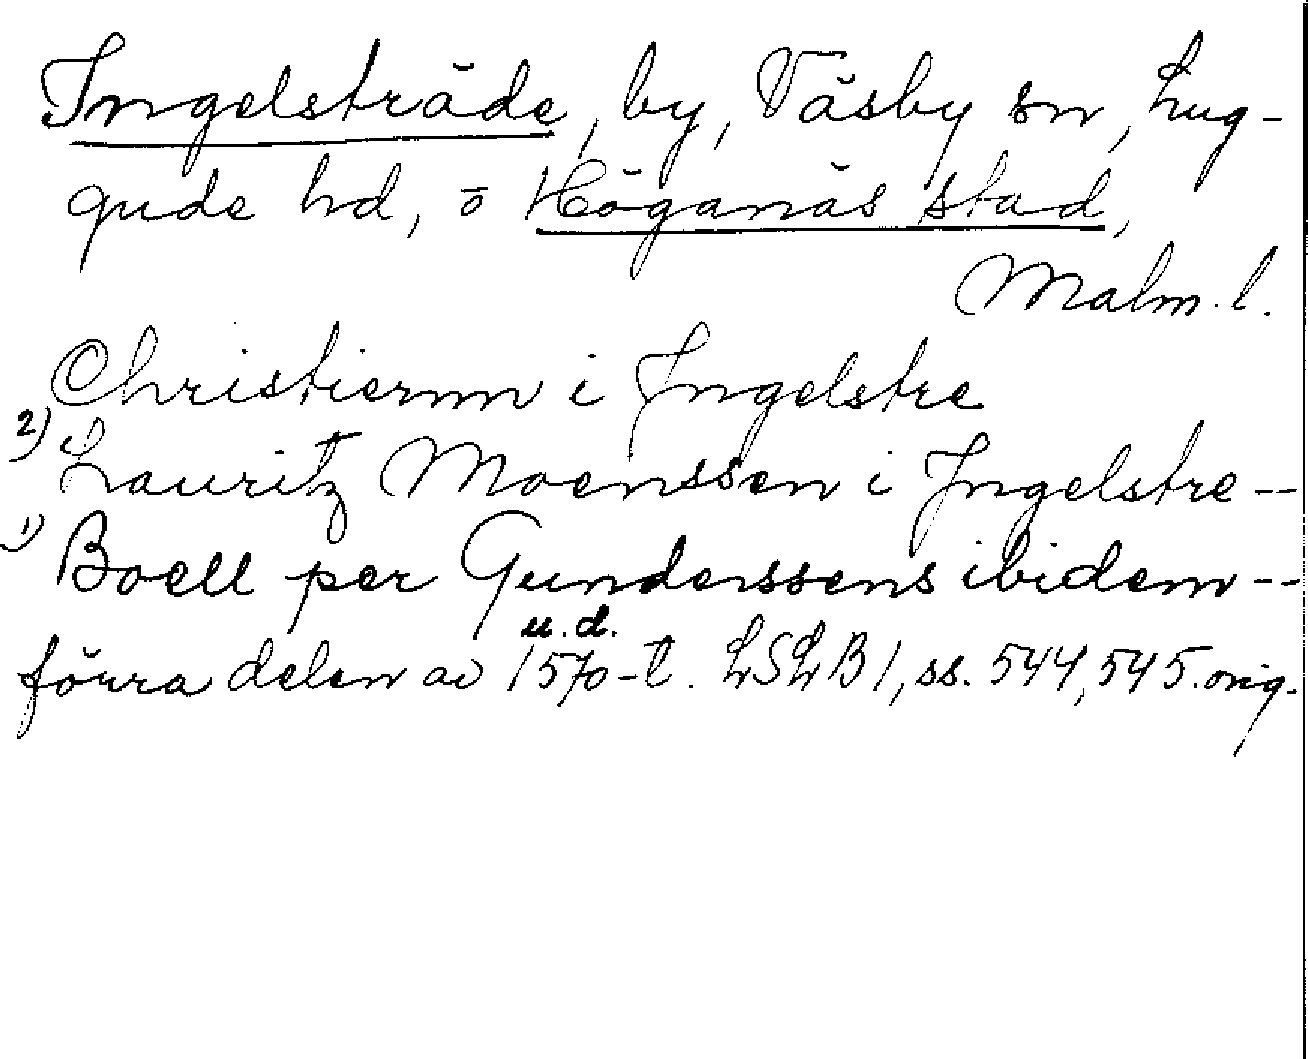 Ingelsträde, by, Väsby sn, Lug-
gude hd, o Höganäs stad,
Malm. l.
Christiernn i Ingelstre
2) Lauritz Moenssen i Ingelstre --
1) Boell per Gunderssens ibidem --
u. d.
förra delen av 1570-t. LSLB 1, ss. 544, 545. orig.